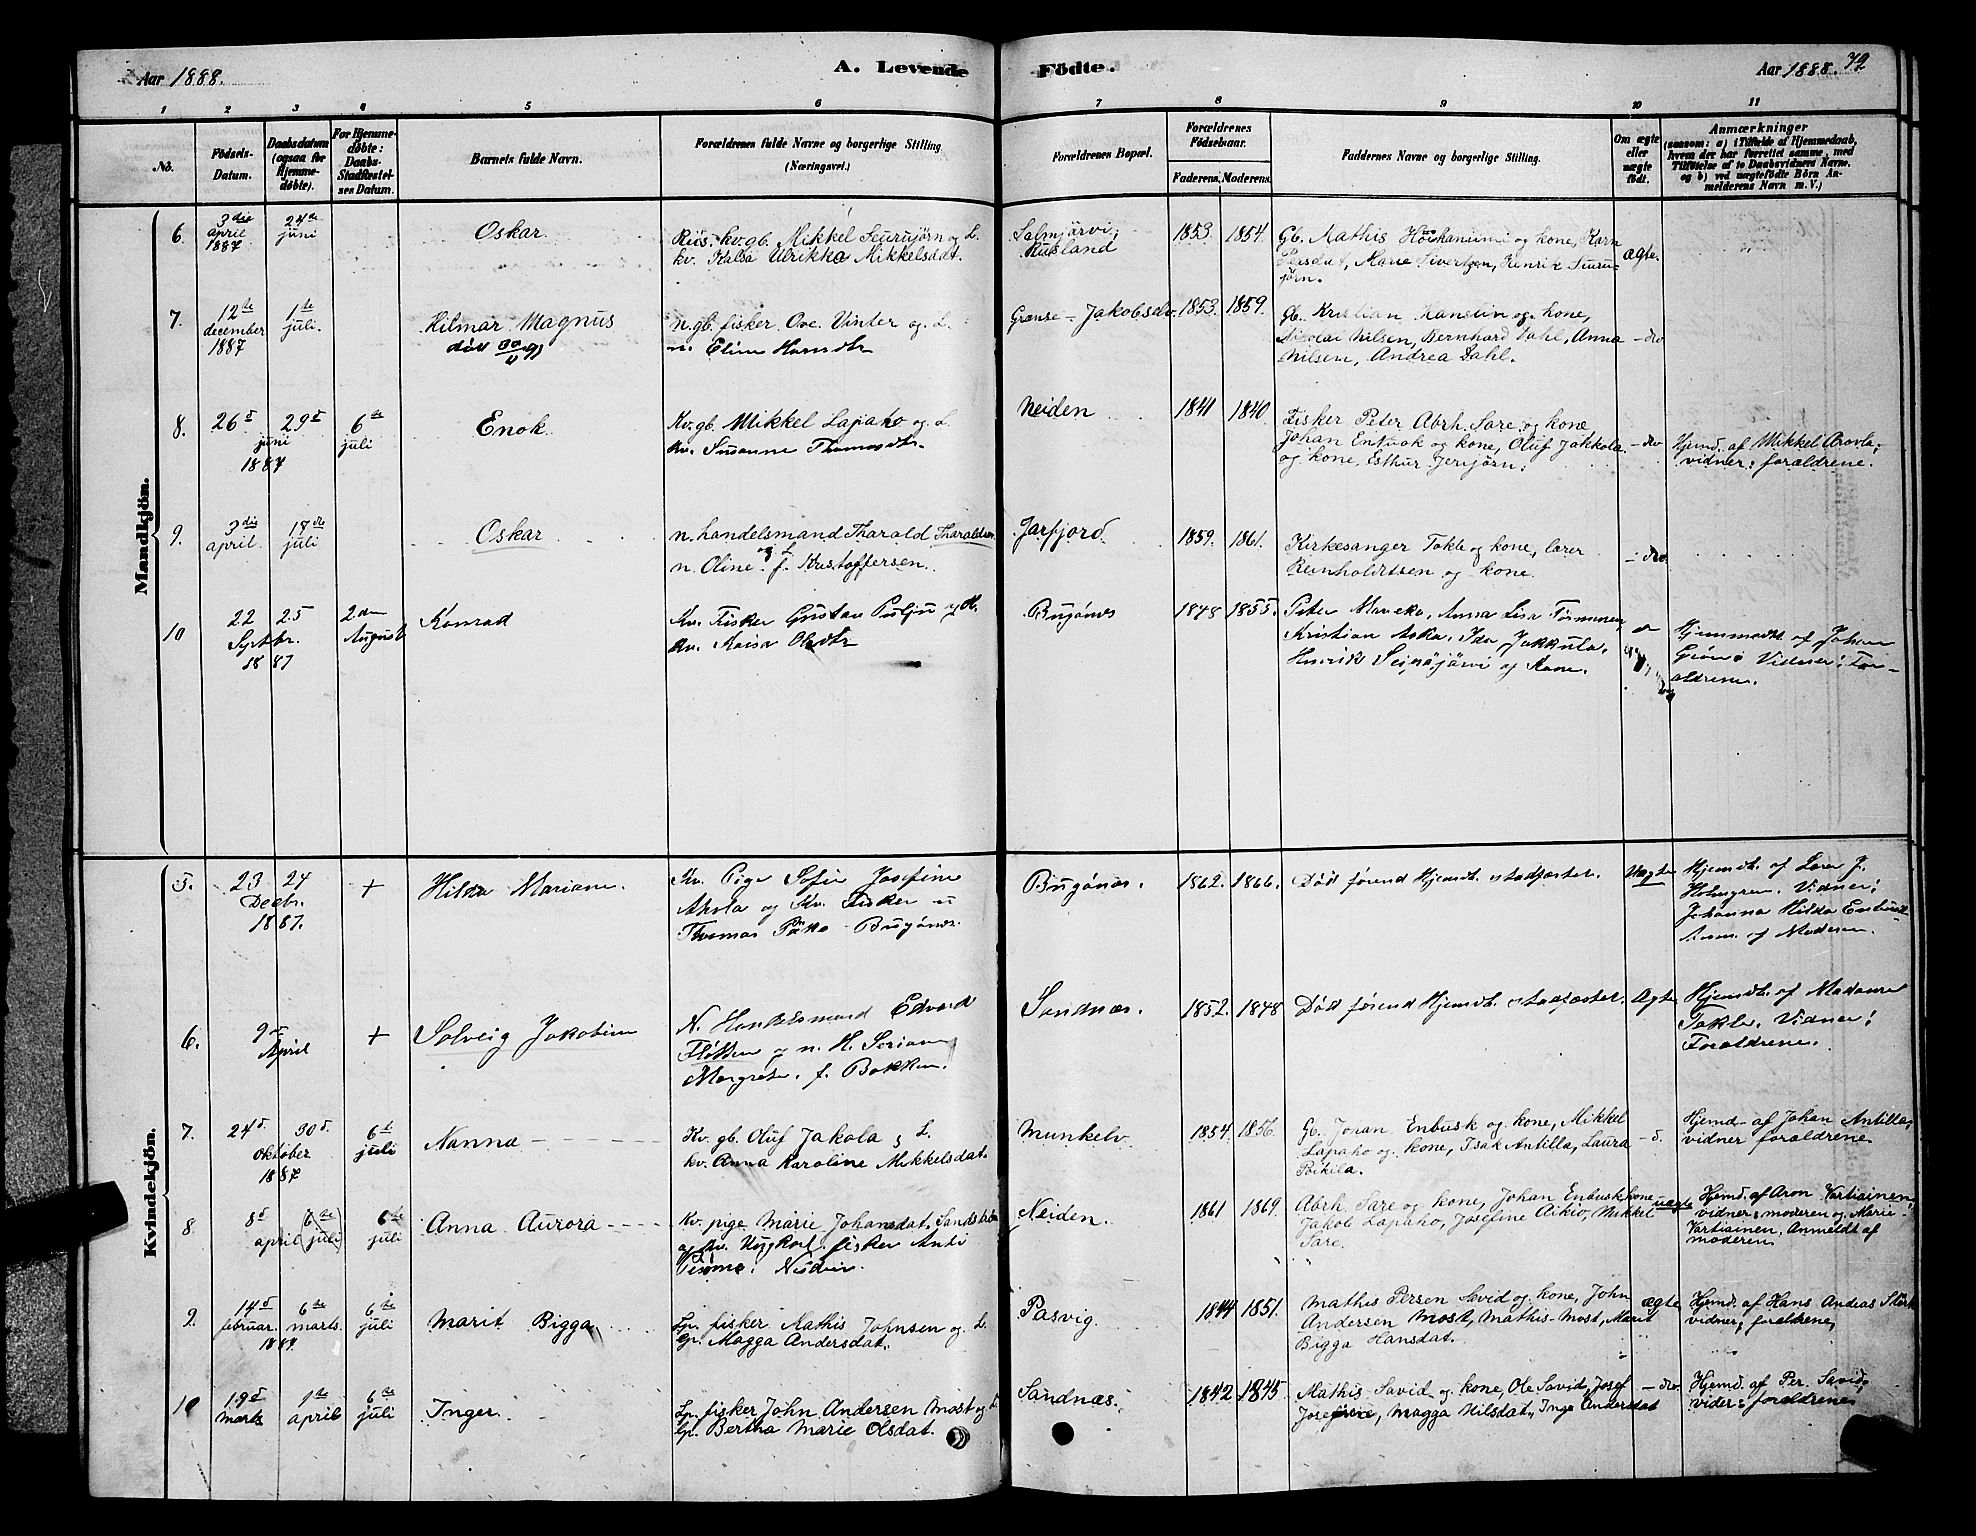 Aar 1888.
A. Levende
Födte.
Aar 1888. 72
1 2 3 4 5 6 7 8 9 10 11
No.
Födsels-
Datum.
Daabsdatum
(ogsaa for
Hjemme-
døbte).
For Hjemme-
døbte:
Daabs-
Stadfæstel-
ses Datum.
Barnets fulde Navn.
Forældrenes fulde Navne og borgerlige Stilling
(Næringsvei.)
Forældrenes Bopæl.
Forældrenes
Födselsaar.
Faderens. Moderens.
Faddernes Navne og borgerlige Stilling.
Om ægte
eller
uægte
född.
Anmærkninger
(saasom: a) i Tilfælde af Hjemmedaab,
hvem der har forrettet samme, med
Tilføielse af to Daabsvidners Navne,
og b) ved uægtefödte Börn An-
melderens Navn m. V.)
Mandkjön.
6. 3die april 1887 24de juni Oskar
kv. gb. Mikkel og L.
kv. Kaisa Ulrikka Mikkelsdat.
Salmjärvi, Rusland 1853. 1854.
Gb. Mathis og kone, Karn
Larsdat, Marie Sivertsen, Henrik
ægte. "
7. 12te december 1887 1ste juli. Hilmar Magnus
død
n. gb. fisker Ove Vinter og L.
n. Eline
Grænse-Jakobselv. 1853. 1859.
Gb. Kristian og kone,
Nikolai Nilsen, Bernhard Dahl, Anna
Nilsen, Andrea Dahl.
- do
8. 26d 29d juni 1887 6te juli Enok
Kv. gb. Mikkel Lapaho og L.
kv. Susanne Thomasdtr.
Neiden 1841 1840.
Fisker Peter Abrh. Sare og kone
Johan og kone, Oluf Jakkola
og kone, Esthur
- do Hjemd. af Mikkel Aravla;
vidner: forældrene.
9. 3die april. 18de juli Oskar
n. handelsmand Tharald Tharaldsen
og L.
n. Oline f. Kristoffersen.
Jarfjord 1859. 1861.
Kirkesanger Takle og kone, lærer
Reinholdtsen og kone.
- do.
10 22 25 Septbr. 1887 2den August Konrad
Kv. Fisker Gustav og H.
kv. Kaisa Olsdtr
Bugönes 1848 1855.
Peter Anna Lisa
Kristian Aska, Ida Jakkula,
Henrik Seinäjärvi og Kone.
Hjemmedt. af Johan
Vidner: For-
ældrene.
Kvindekjön.
5. 23 24 Decbr. 1887. + Hilda Mariane.
Kv. Pige Sofie Josefine
Ahola og Kv. Fisker
Thomas Bugönes.
Bugönes. 1862. 1866.
Död förend Hjemdt. stadfæstes.
Uægte Hjemdt. af Lærer J.
Holmgren. Vidner:
Johanna Hilda
Anm. af Moderen.
6. 9d April + Solveig Jakobine
N. Handelsmand Edvard
og n. H. Seriane
Margrete. f. Bakken.
Sandnæs. 1852. 1848
Död förend Hjemdt. stadfæstes.
Ægte Hjemdt. af Madame
Takle. Vidner:
Forældrene.
7. 24d 30d. oktober 1887 6te juli Nanna
Kv. gb. Oluf Jakola og L.
kv. Anna Karoline Mikkelsdat.
Munkelv. 1854. 1856.
Gb. Johan Enbusk og kone, Mikkel
Lapaho og kone, Isak Antilla, Laura
Poikila.
- d. Hjemd. af Johan Antilla,
vidner forældrene.
8. 8d april (6te juli) 6te juli Anna Aurora
Kv. pige Marie Johansdat.
og kv. Ungkarl. fisker Anti
Neiden.
Neiden. 1861 1869.
Abrh. Sare og kone, Johan Enbusk kone
Jakob Lapaho, Josefine Aikio, Mikkel
Sare.
uægte Hjemd. af Aron Vartiainen,
vidner: moderen og Marie
Vartiainen. Anmeldt af
moderen
9. 14d februar 6te marts. 1887 6te juli Marit Bigga
Lp. fisker Mathis Johnsen og L.
lp. Magga Andersdat.
Pasvig. 1844 1851.
Mathis Persen Savid og kone, John
Andersen Most, Mathis Most, Marit
Bigga Hansdat.
ægte Hjemd. af Hans Andreas
vidner; forældrene,
10 19d Marts 1te april 6te juli Inger.
Lp. fisker John Andersen Most og L.
lp. Bertha Marie Olsdat.
Sandnæs. 1842 1845.
Mathis Savid og kone, Ole Savid, Josef
Magga Nilsdat., Inga Andersdat
- do. Hjemd. af Per Savid,
vidner: forældrene